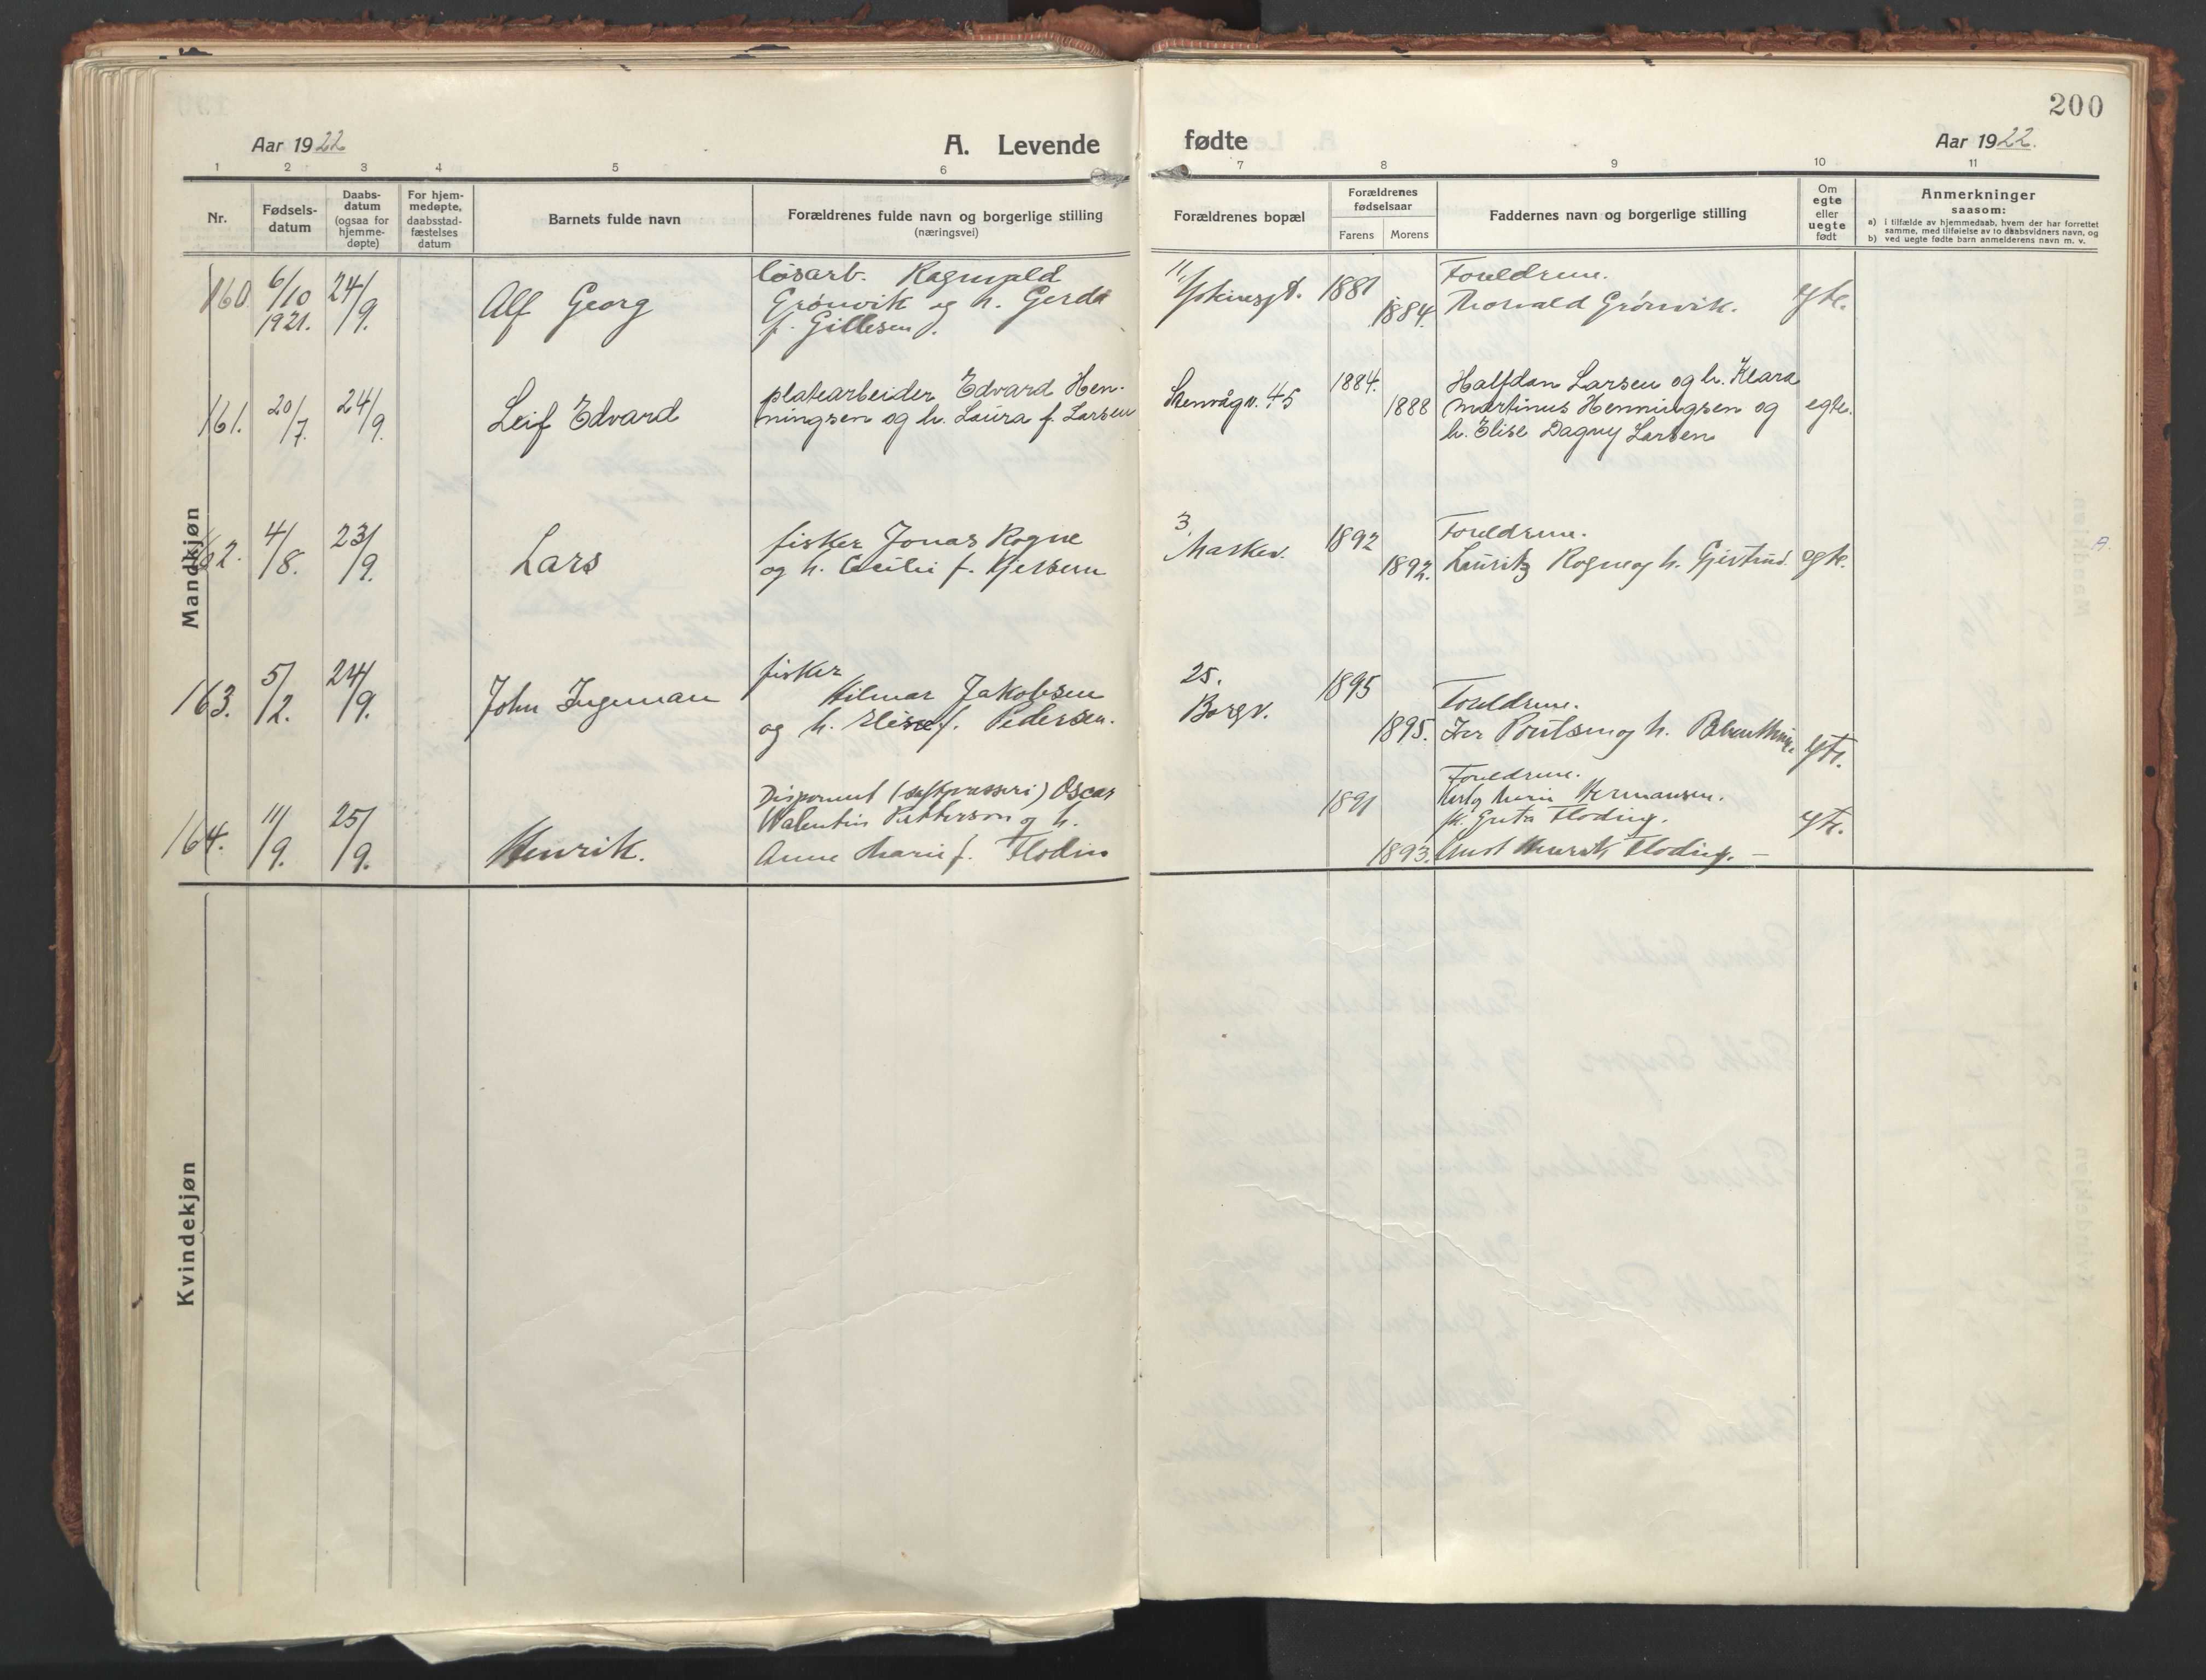 200
Aar 1922
A. Levende
fødte
Aar 1922.
1 2 3 4 5 6 7 8 9 10 11
Nr.
Fødsels-
datum
Daabs-
datum
(ogsaa for
hjemme-
døpte)
For hjem-
medøpte,
daabsstad-
fæstelses
datum
Barnets fulde navn
Forældrenes fulde navn og borgerlige stilling
(næringsvei)
Forældrenes bopæl
Forældrenes
fødselsaar
Farens
Morens
Faddernes navn og borgerlige stilling
Om
egte
eller
uegte
født
Anmerkninger
saasom:
a) i tilfælde av hjemmedaab, hvem der har forrettet
samme, med tilføielse av to daabsvidners navn, og
b) ved uegte fødte barn anmelderens navn m. v.
Mandkjøn
160. 6/10 1921. 24/9. Alf Georg
løsarb. Ragnvald
Grönvik og h. Gerda
f. Gillesen.
11 1881 1884.
Foreldrene.
Thorvald Grönvik.
egte.
161. 20/7. 24/9. Leif Edvard
platearbeider Edvard Hen-
ningsen og h. Laura f. Larsen
Stenvågv. 45 1884. 1888
Halfdan Larsen og h. Klara
Martinus Henningsen og
h. Elise Dagny Larsen
egte.
162. 4/8. 23/9. Lars
fisker Jonas Rogne
og h. Cecilie f.
3 1892 1892.
Foreldrene.
Lauritz Rogne og h. Gjertrud.
egte.
A.
163. 5/2. 24/9. John Ingeman
fisker
Hilmar Jakobsen
og h. Elise f. Pedersen.
25.
Borgv. 1895 1895.
Foreldrene.
Iver Poulsen og h.
egte.
164. 11/9. 25/9. Henrik.
Disponent Oscar
Valentin Petterson og h.
Anne Marie f. Flodin
1891 1893.
Foreldrene.
Marie Hermansen.
fk. Greta Floding.
Henrik Floding. –
egte.
Kvindekjøn